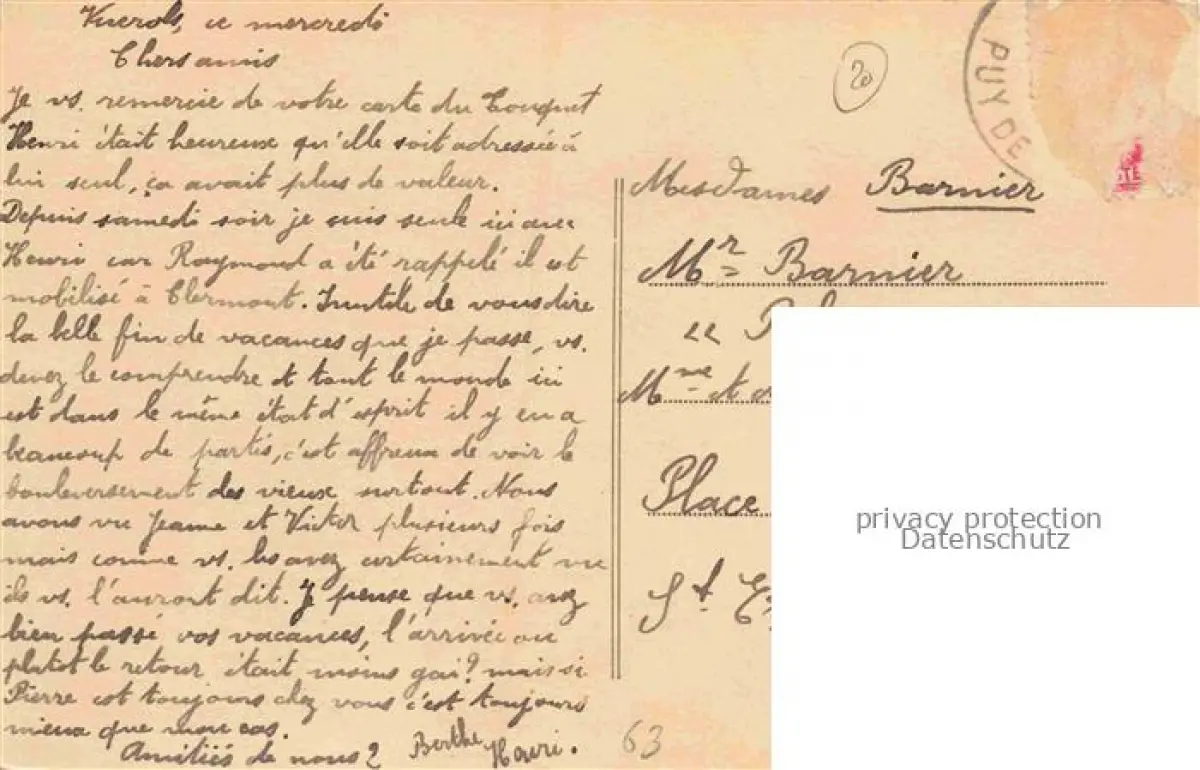 ce mercredi
Chers amis
Je vs. remercie de votre carte du Touquet
Henri était heureux qu'elle soit adressée à
lui seul, ça avait plus de valeur.
Depuis samedi soir je suis seule ici avec
Henri car Raymond a été rappelé il est
mobilisé à Clermont. Inutile de vous dire
la belle fin de vacances que je passe, vs.
devez le comprendre et tout le monde ici
est dans le même état d'esprit il y en a
beaucoup de partis, c'est affreux de voir le
bouleversement des vieux surtout. Nous
avons vu Jeanne et Victor plusieurs fois
mais comme vs. les avez certainement vu
ils vs. l'auront dit. Je pense que vs. avez
bien passé vos vacances, l'arrivée ou
plutot le retour était moins gai? mais si
Pierre est toujours chez vous c'est toujours
mieux que mon cas.
Amitiés de nous 2 Berthe Henri.
20
PUY DE
Mesdames Barnier
Mr Barnier
"
Mme
Place
St. E
63
privacy protection
Datenschutz